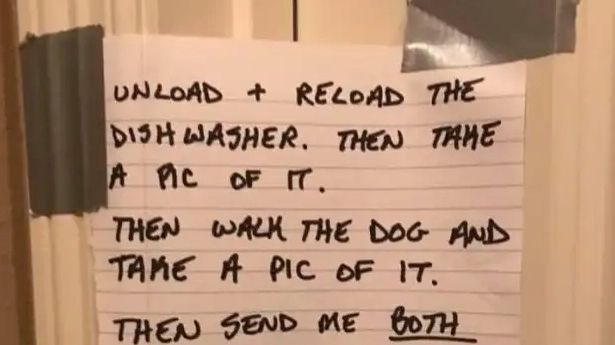 UNLOAD + RELOAD THE
DISHWASHER. THEN TAKE
A PIC OF IT.
THEN WALK THE DOG AND
TAKE A PIC OF IT.
THEN SEND ME BOTH